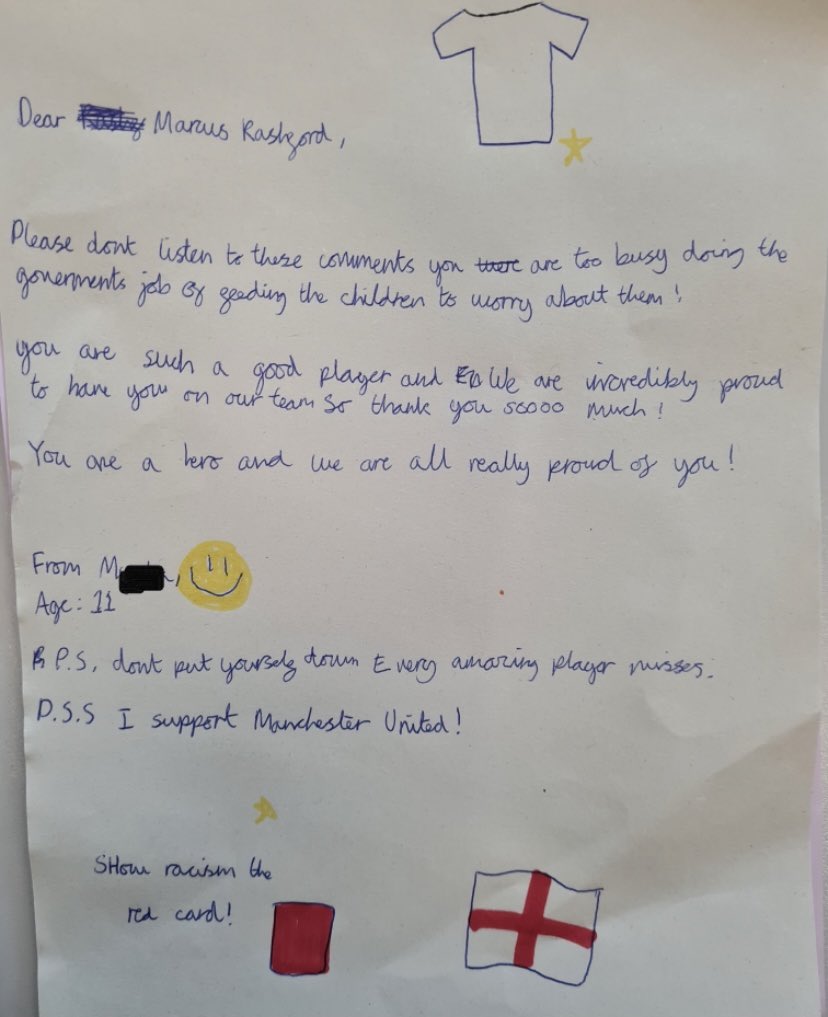 Dear Marcus Rashford,
Please dont listen to these comments you there are too busy doing the
goverments job of feeding the children to worry about them!
you are such a good player and We are incredibly proud
to have you on our team so thank you soooo much!
You are a hero and we are all really proud of you!
From M
Age: 11
P.S, dont put yourself down Every amazing player misses.
P.S.S I support Manchester United!
SHow racism the
red card!